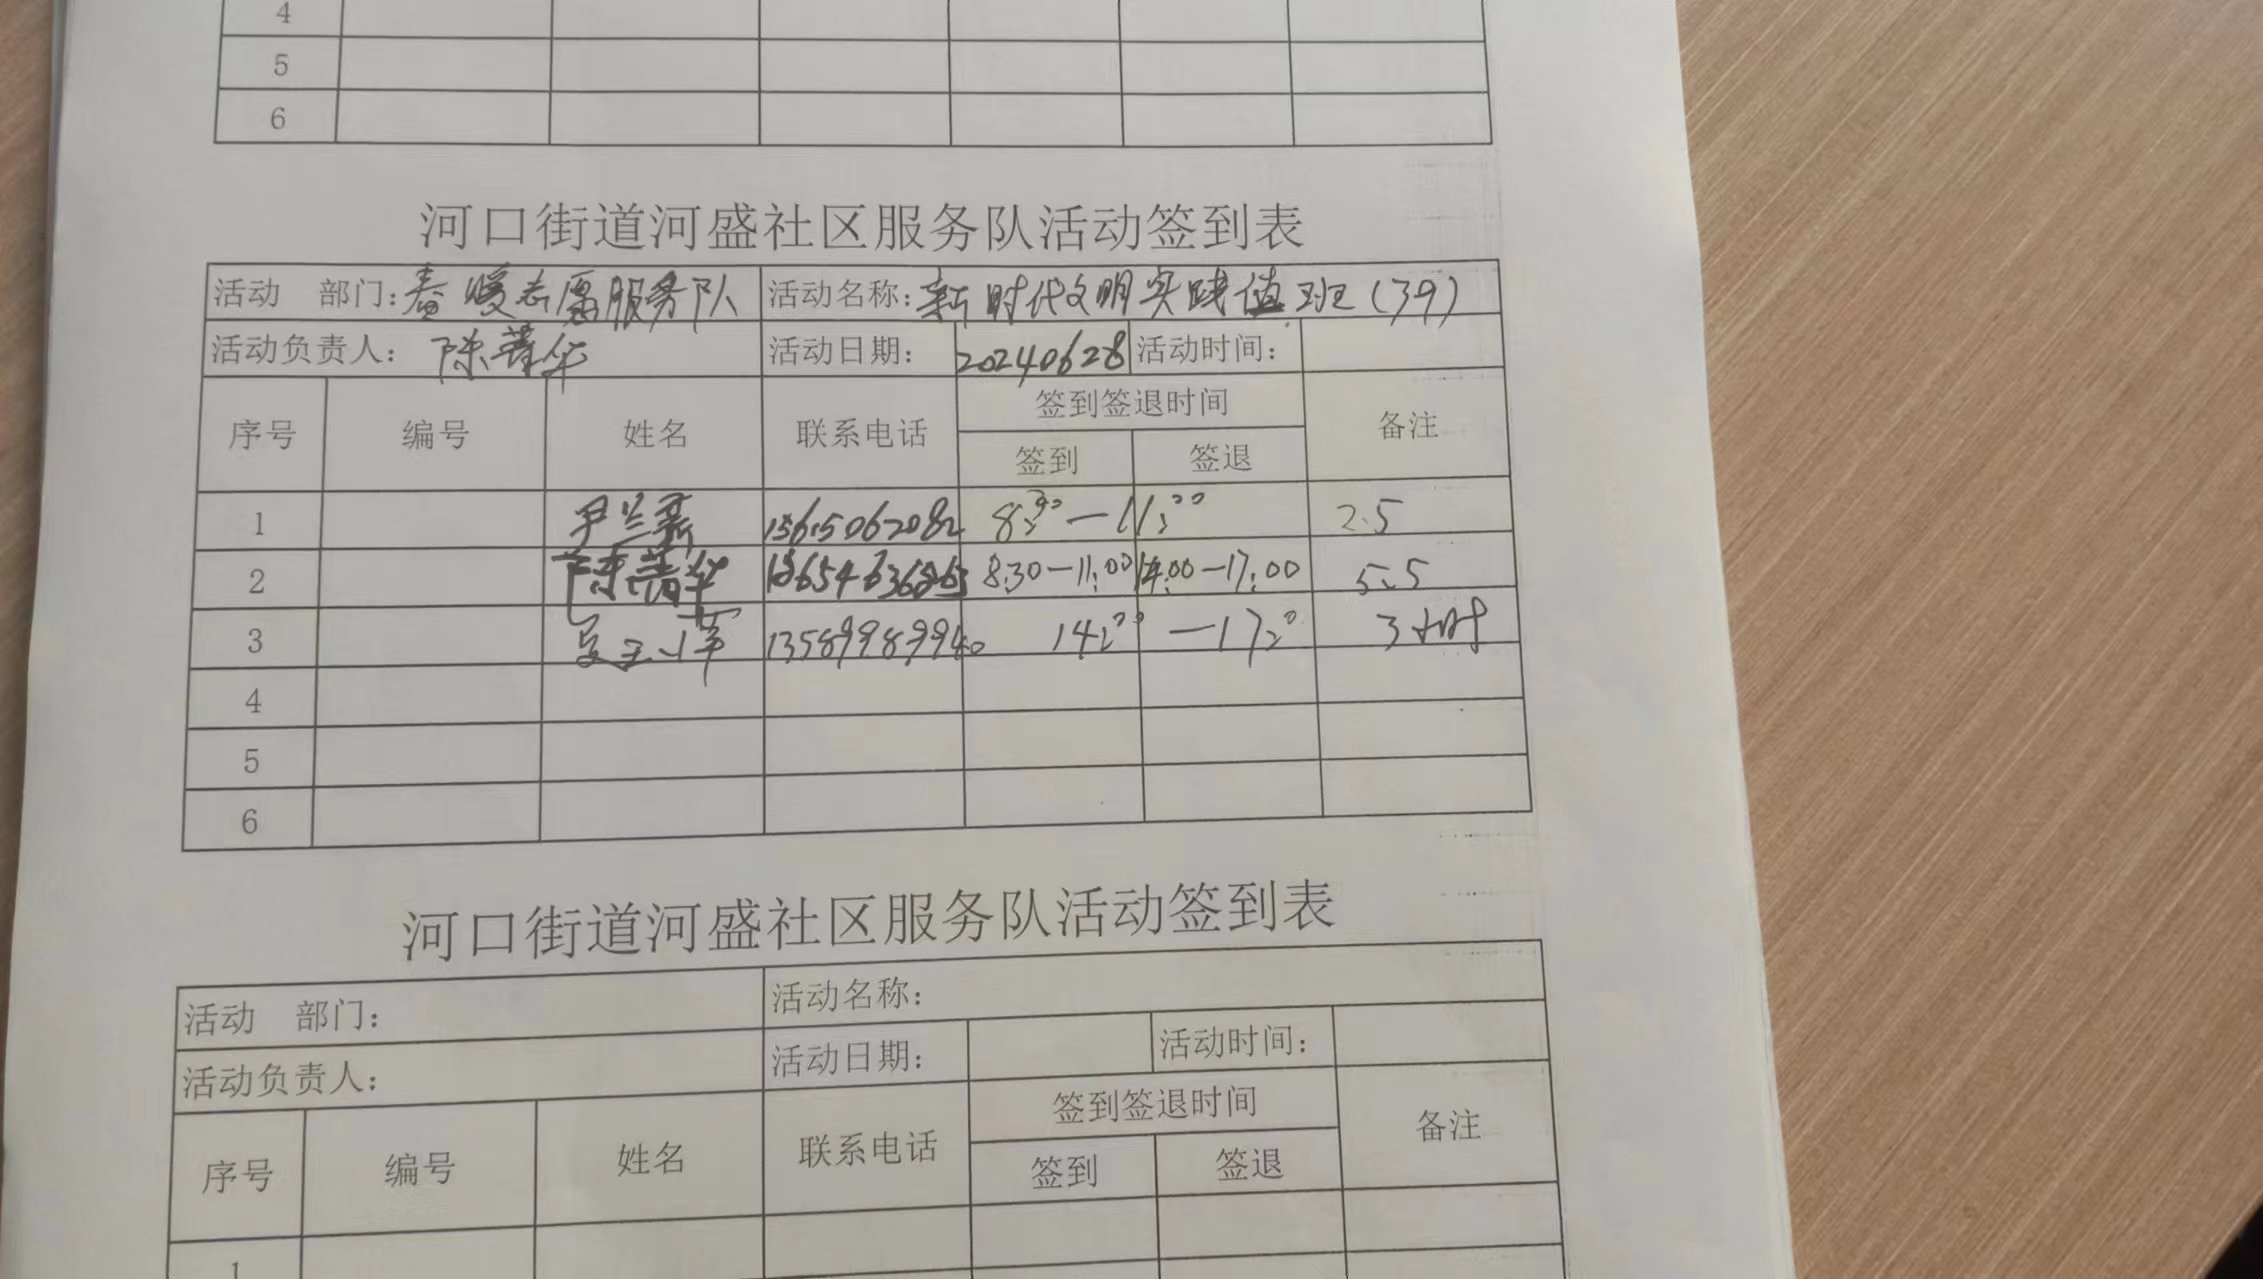 4
5
6
河口街道河盛社区服务队活动签到表
活动 部门：春暖志愿服务队 活动名称：新时代文明实践值班(39)
活动负责人：陈菁华 活动日期： 20240628 活动时间：
序号 编号 姓名 联系电话 签到签退时间 备注
签到 签退
1 尹兰 15615062082 8:30—11:00 2.5
2 陈菁华 8:30—11:00 14:00—17:00 5.5
3 13589989940 14:00 —17:0 3小时
4
5
6
河口街道河盛社区服务队活动签到表
活动 部门： 活动名称：
活动负责人： 活动日期： 活动时间：
序号 编号 姓名 联系电话 签到签退时间 备注
签到 签退
1